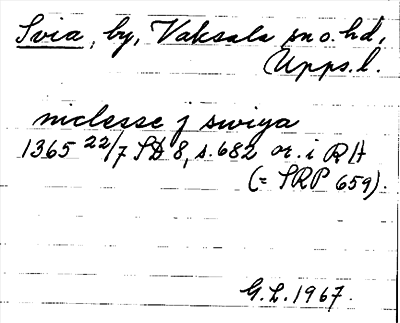 Svia, by, Vaksala sn o. hd,
Upps. l.
niclesse j swiya
1365 22/7 SD 8, s. 682 or. i RA
(= SRP 659).
G. L. 1967.